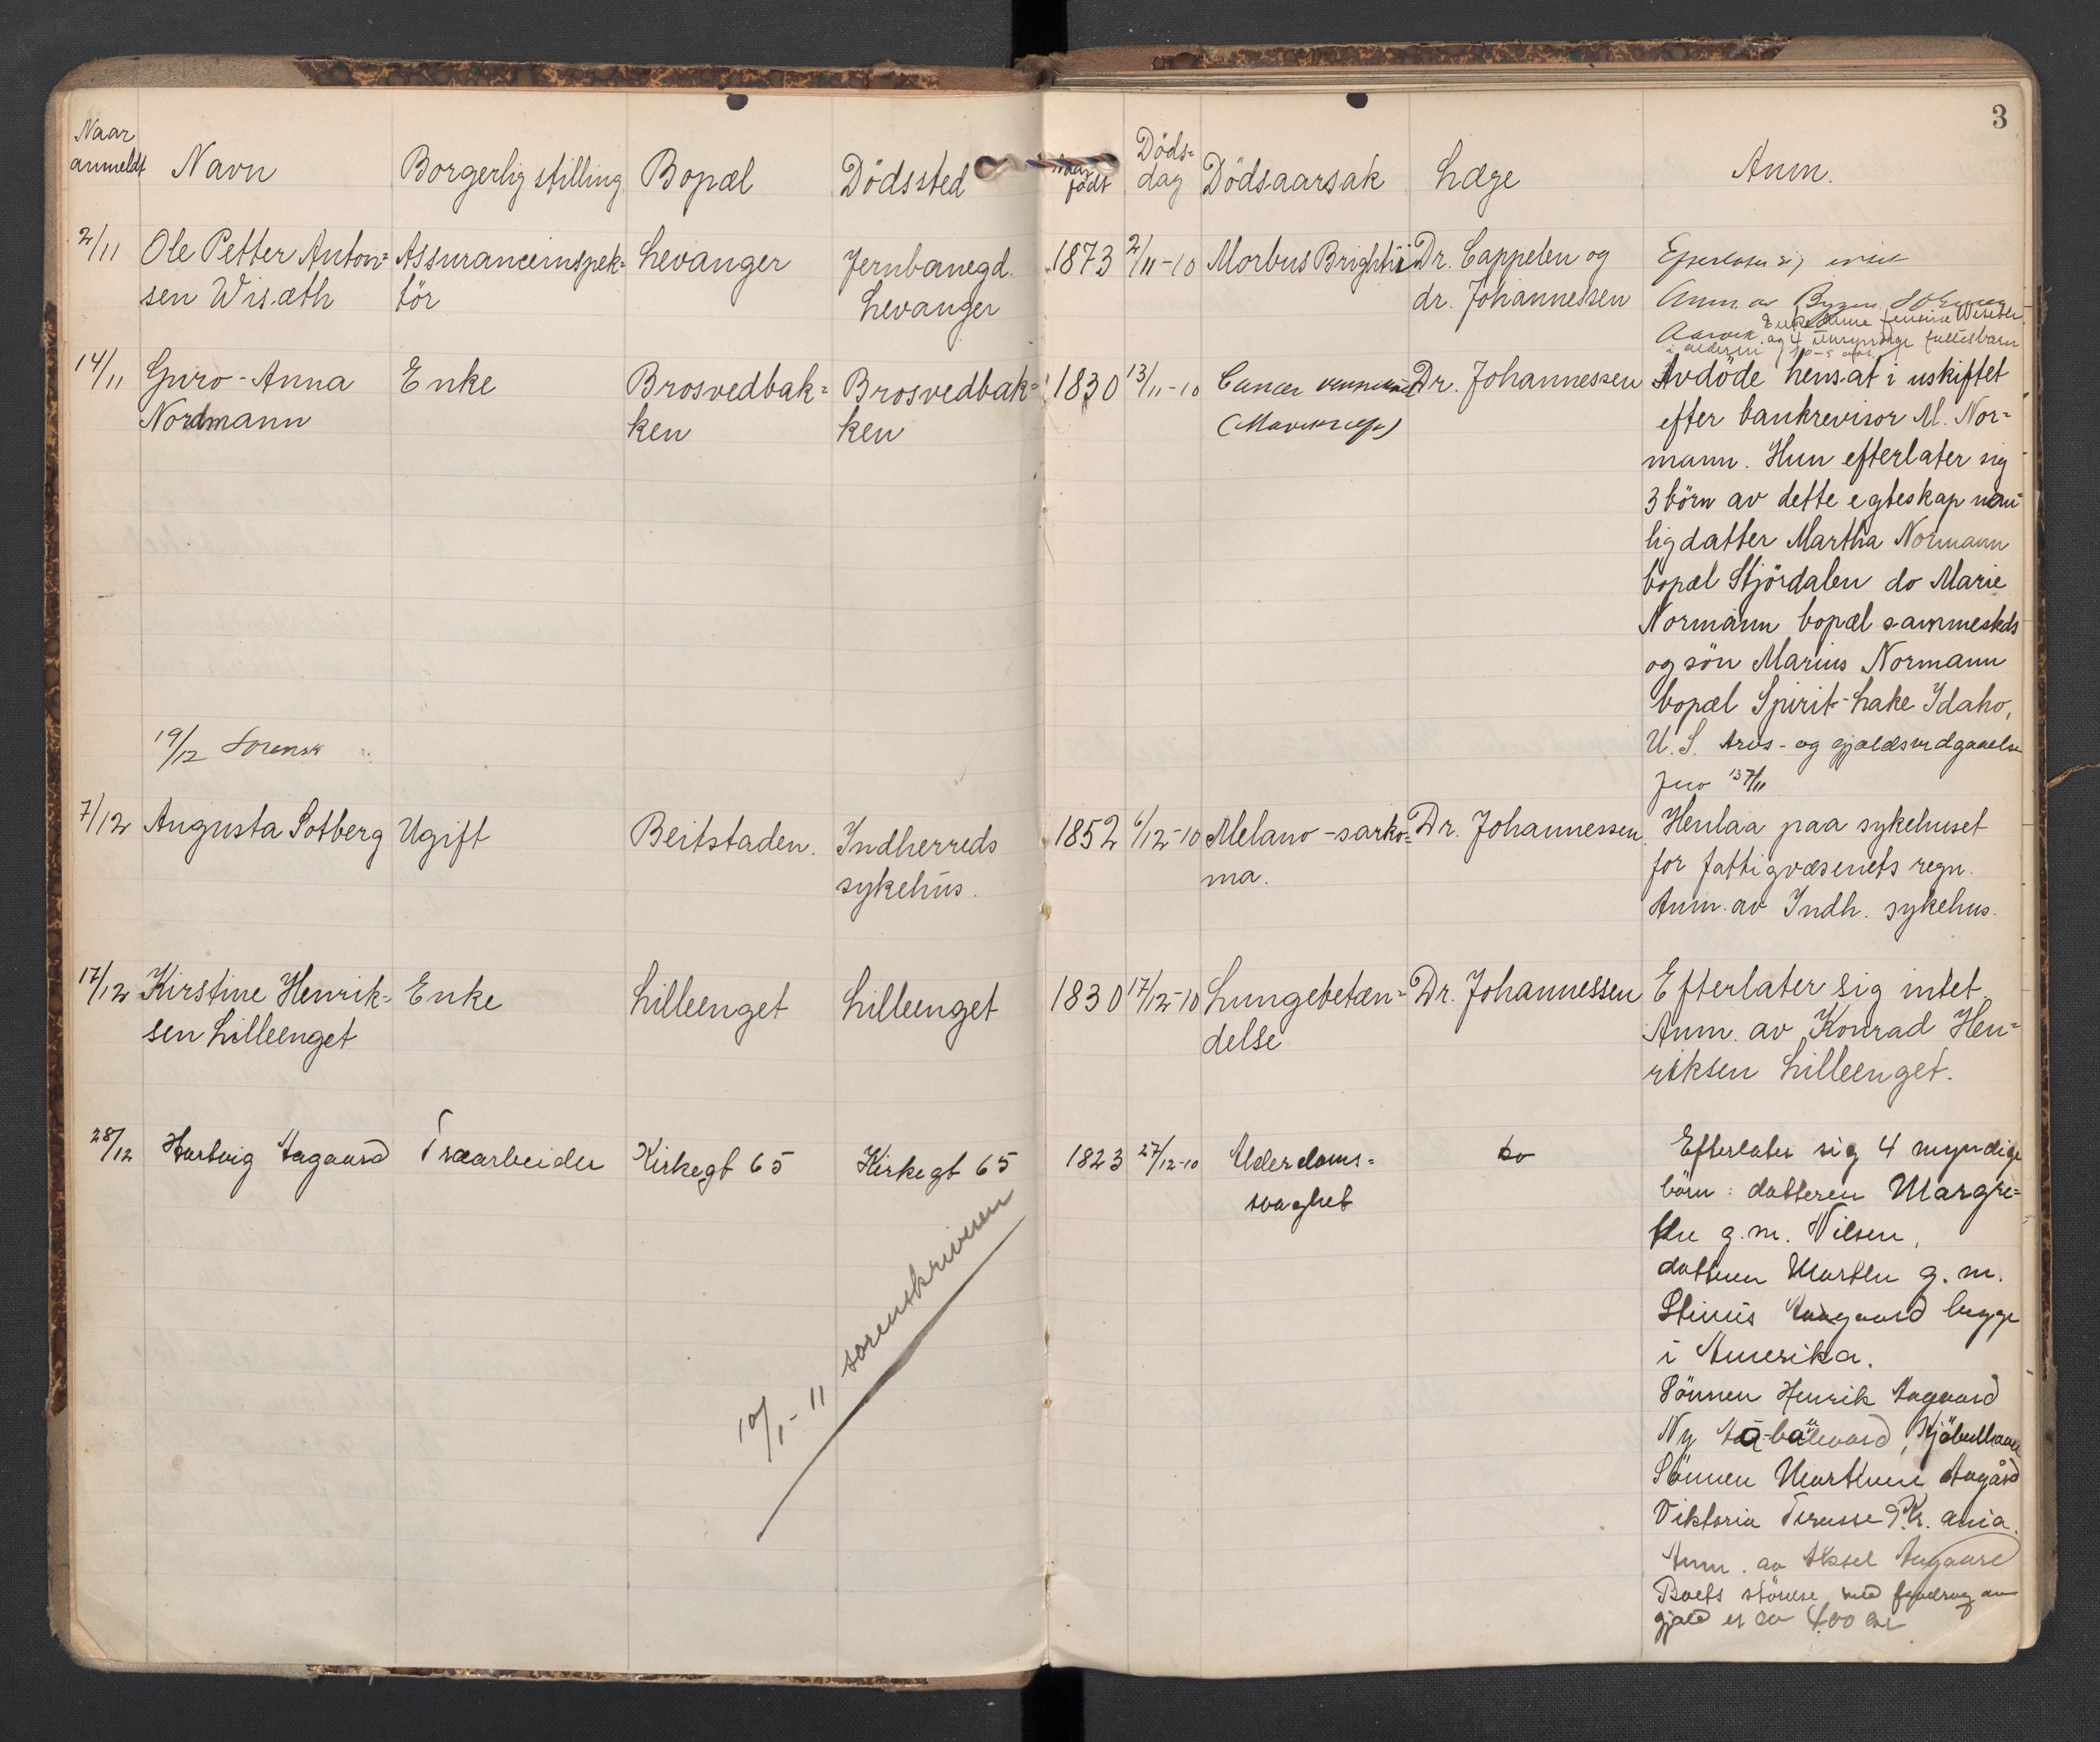 3
Naar anmeldt Navn Borgerlig stilling Bopæl Dödssted Naar födt Döds=dag Dödsaarsak Læge Anm.
2/11 Ole Petter Anton= Assuranceinspek= Levanger Jernbanegd. 1873 2/11-10 Morbus Brightii Dr. Cappelen og
sen Wisæth tör Levanger dr. Johannessen
Efterlater sig intet
Anm. av
Enke
og 4 umyndige fællesbarn
i alderen
14/11 Guro-Anna Enke Brosvedbak= Brosvedbak= 1830 13/11-10 Cancer Dr. Johannessen Avdöde hensat i uskiftet
Nordmann ken ken efter bankrevisor M. Nor=
mann. Hun efterlater sig
3 börn av dette egteskap nem
lig datter Martha Normann
bopæl Stjördalen do Marie
Normann bopæl sammesteds
og sön Marius Normann
bopæl Spirit-Lake Idaho,
U. S. Arvs- og gjældsvedgaaelse
19/12 Sorensk
7/12 Augusta Solberg Ugift Beitstaden. Indherreds 1852 6/12-10 Melano-sarko= Dr. Johannessen. Henlaa paa sykehuset
sykehus. ma. for fattigvæsenets regn.
Anm. av Indh. sykehus.
17/12 Kirstine Henrik= Enke Lilleenget Lilleenget 1830 17/12-10 Lungebetæn= Dr. Johannessen Efterlater sig intet.
sen Lilleenget delse Anm. av Konrad Hen=
riksen Lilleenget.
28/12 Hartvig Aagaard Træarbeider Kirkegt 65 Kirkegt 65 1823 27/12-10 Alderdoms= do Efterlater sig 4 myndige
svaghet börn: datteren Margre=
the g.m. Nilsen,
datteren Marthe g.m.
Stinus Aagaard begge
i Amerika.
Sönnen Henrik Aagaard
Ny Kjöbenhavn
Sönnen Aagård
Viktoria Terasse Kr.ania.
Anm. av Aksel Aagaard
Boets störrelse med fradrag av
gjæld er ca 400
10/1-11 sorenskriveren